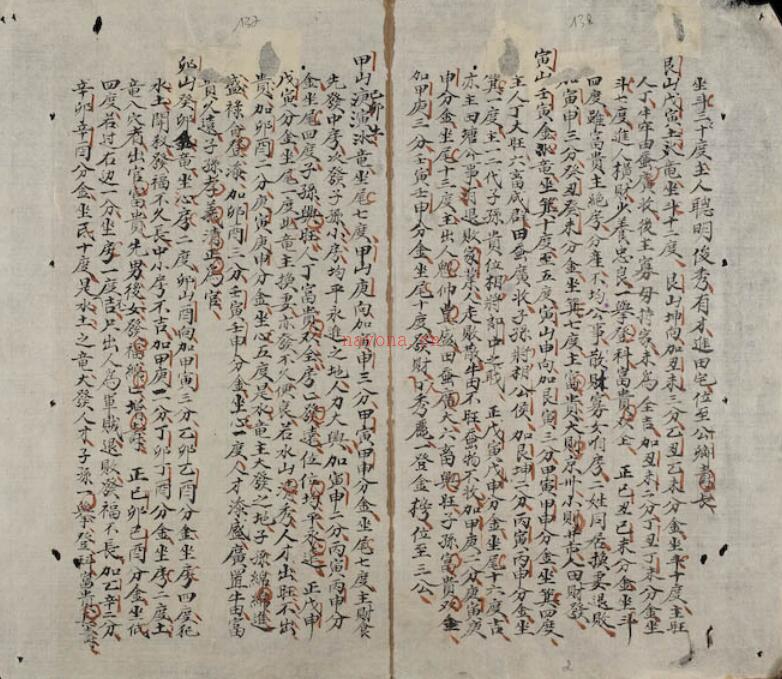 138
坐斗二十度主人聰明俊秀有才進田宅位至公卿壽長
艮山戊寅土竜坐斗十二度艮山坤向加丑未三分乙丑乙未分金坐斗十度主旺
人丁牛牢田蚕廣收後主寡母持家未為全吉加丑未二分丁丑丁未分金坐
斗七度進人橫財少養忠良一舉登科富貴双全正己丑己未分金坐斗
四度雖富貴主絕房分產不均公事散財寡女有房二姓同居換妻退敗
加寅申三分癸丑癸未分金坐箕七度主富貴大則京州小則市人田財發
寅山壬寅金竜坐箕十度至五度寅山申向加艮寅三分甲寅甲申分金坐箕四度
主人丁大旺六畜成群田蚕廣收子孫將相公侯加艮坤二分丙寅丙申分金坐
箕一度主一二代子孫貴位相將部中之職正戊寅戊申分金坐尾十六度吉
亦主田塘公事有退敗家業人走敗散牛田不旺蚕物不收加甲庚二分庚寅庚
申分金坐尾十三度主出人魁仲貴废田蚕廣大六畜興旺子孫富貴双全
加甲庚三分壬寅壬申分金坐尾十度發財出秀麗一登金榜位至三公
137
甲山竜坐尾七度甲山庚向加寅申三分甲寅甲申分金坐尾七度主財食
先發中房次發子孫小房均平永進之地人力大興加寅申二分丙寅丙申分
金坐尾四度子孫興旺人丁富貴双全房房發達位位均平永進正戊申
戊寅分金坐尾一度此竜主換妻亦發不久便良若水山清秀人才出旺不出
貴加卯酉二分庚寅庚申分金坐心五度是水竜主大發之地子孫綿綿進
盛祿登加卯酉三分壬寅壬申分金坐心一度人才盛廣置牛田富
貴久遠子孫孝義清正為官
卯山癸卯金竜坐房二度卯山酉向加甲寅三分乙卯乙酉分金坐房四度花
水土開殺發福不久長中小房不吉加甲庚二分丁卯丁酉分金坐房二度土
竜入穴有出官富貴先男後女發福正己卯己酉分金坐氐
四度若过右边一分坐房一度吉只出人為軍賊退敗發福不長加乙辛二分
辛卯辛酉分金坐氐十度是水土之竜大發人才子孫一舉登科富貴
nayona.cn
2